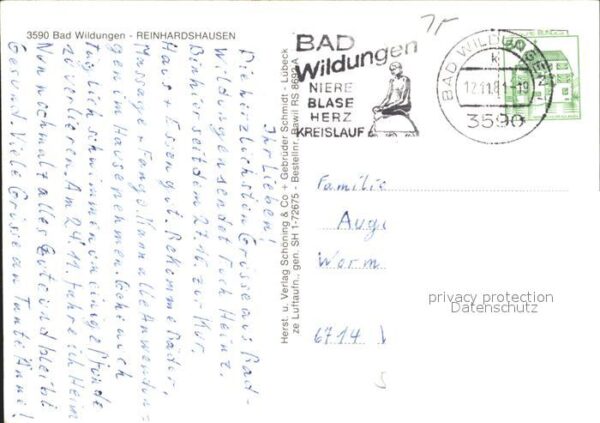 3590 Bad Wildungen - REINHARDSHAUSEN
Ihr Lieben!
Die herzlichsten Grüsse aus Bad-
Wildungen sendet Euch Heinz.
Bin hier seit dem 27.10. zur Kur.
Haus + Essen gut. Bekomme Bäder,
Massage + Fango. Kann alle Anwendun-
gen im Hause nehmen. Gehe auch
täglich schwimmen um einige Pfunde
zu verlieren. Am 24.11. fahre ich Heim
Nun nochmals alles Gute und bleibt
Gesund. Viele Grüsse an Tante Änni!
Herst. u. Verlag Schöning & Co + Gebrüder Schmidt - Lübeck
ze Luftaufn., gen. SH 1-72675 - Bestellnr. Bawil RS 868 A
BAD
Wildungen
NIERE
BLASE
HERZ
KREISLAUF
BAD WILDUNGEN 1
k
12.11.81-19
3590
Familie
Aug
Worm
6714
privacy protection
Datenschutz